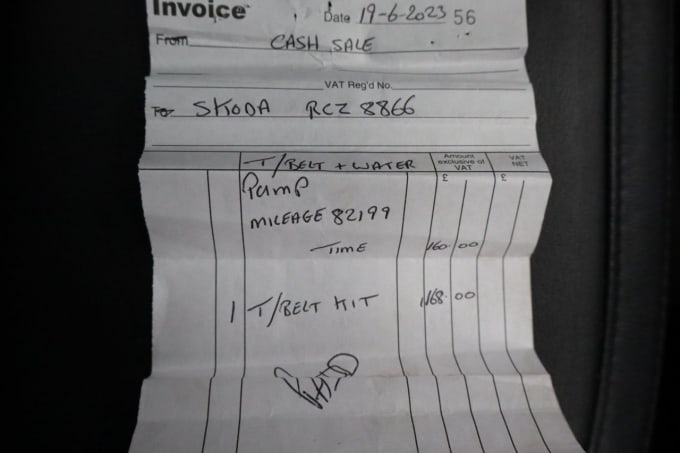 Invoice Date 19-6-2023 56
From CASH SALE
VAT Reg'd No.
To SKODA RCZ 8866
T/BELT + WATER Amount exclusive of VAT VAT NET
Pump £ £
MILEAGE 82199
TIME 160.00
1 T/BELT KIT 168.00
PAID